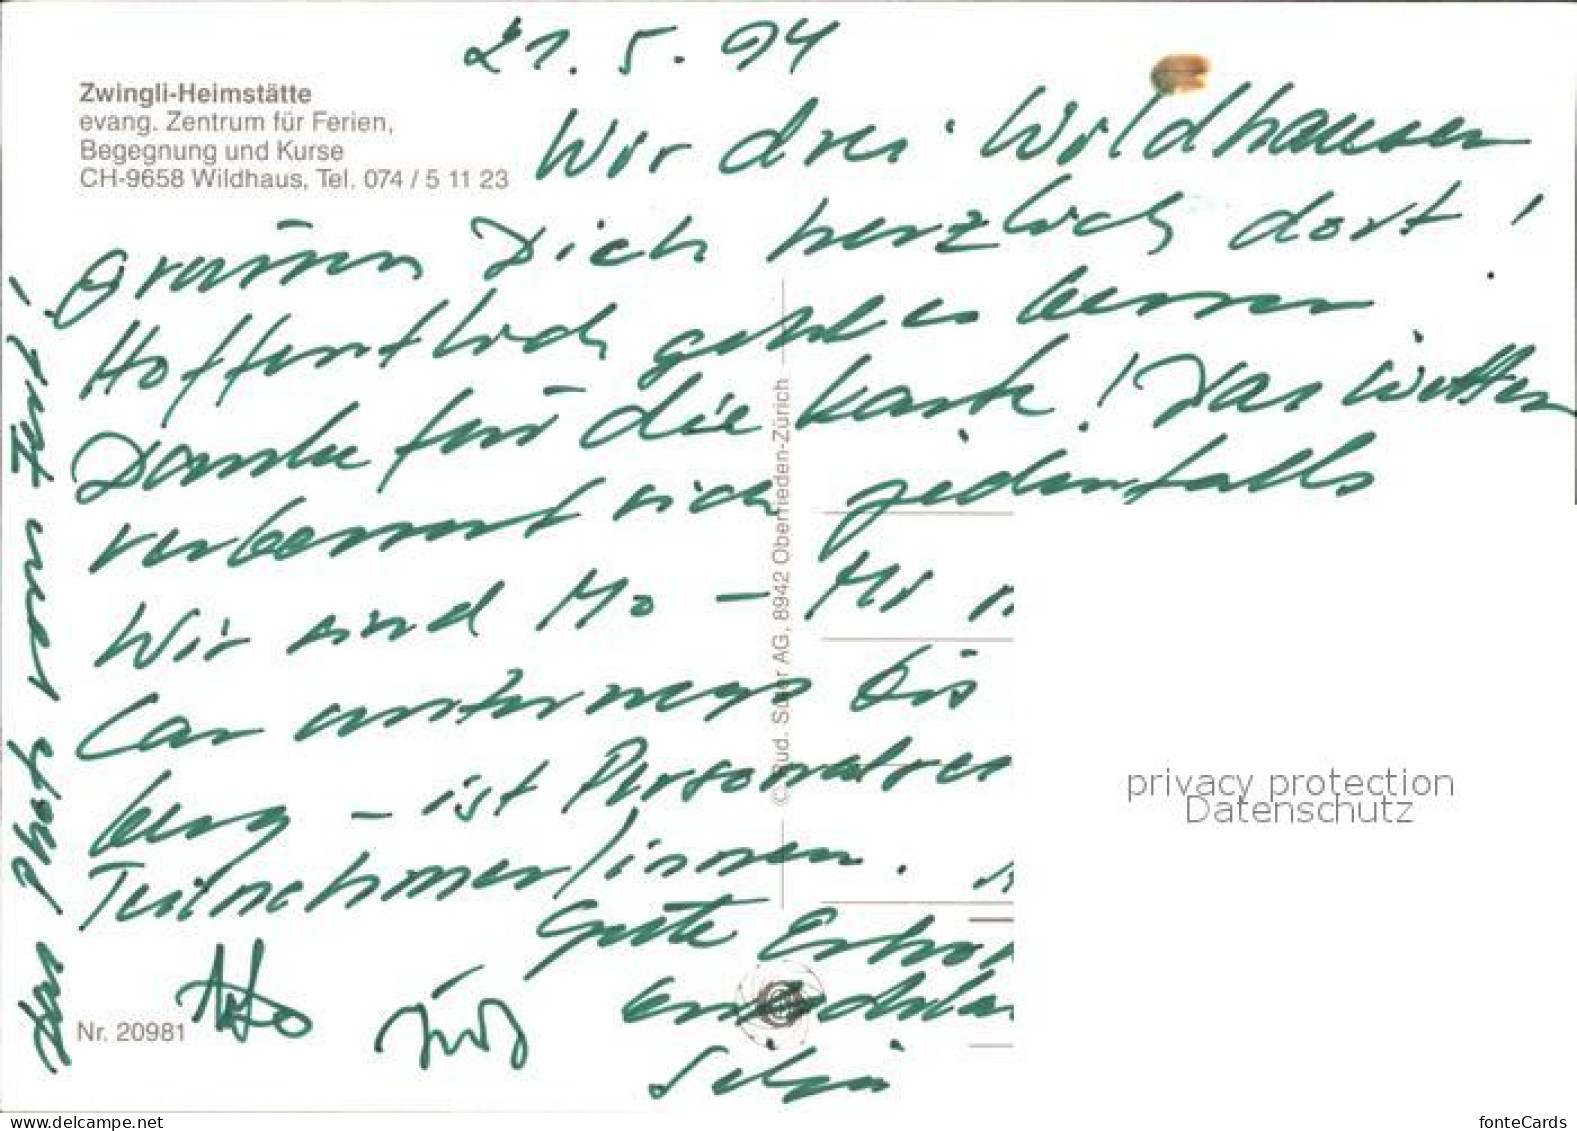 21.5.94
Zwingli-Heimstätte
evang. Zentrum für Ferien,
Begegnung und Kurse
CH-9658 Wildhaus, Tel. 074 / 5 11 23
Wir drei Wildhauser
grüssen Dich herzlich dort!
Hoffentlich geht es besser
Danke für die Karte! Das Wetter
verbessert sich jedenfalls
Wir sind Mo - Mi
Car unterwegs bis
berg - ist Personalrei
Teilnehmer/innen.
Gute Erhol
Silvia
das Photo vom Fest!
Nr. 20981
© Rud. Suter AG, 8942 Oberrieden-Zürich
privacy protection
Datenschutz
www.delcampe.net
fonteCards